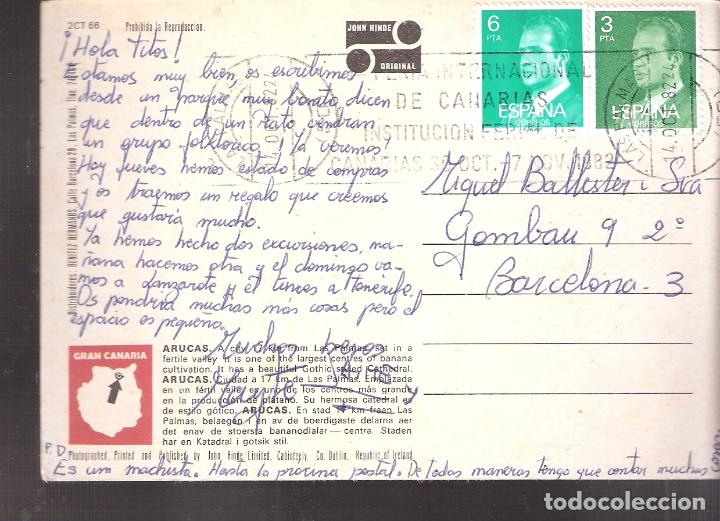 2CT 66
Prohibida la Reproduccion.
JOHN HINDE
ORIGINAL
6
PTA
ESPAÑA
CORREOS
3
PTA
ESPAÑA
CORREOS
FERIA INTERNACIONAL
DE CANARIAS
INSTITUCION FERIAL DE
CANARIAS 30 OCT.-7 NOV. 1982
¡Hola Titos!
otamos muy bien, os escribimos
desde un parque muy bonito, dicen
que dentro de un rato vendran
un grupo folklorico! ¡Ya veremos!
Hoy jueves hemos estado de compras
y os traemos un regalo que creemos
que gustará mucho.
Ya hemos hecho dos excursiones, ma-
ñana hacemos otra y el domingo va-
mos a Lanzarote y el lunes a Tenerife.
Os pondria muchas más cosas pero el
espacio es pequeño.
Muchos besos
Miguel Ballester i Sra
Gombau 9 2º
Barcelona-3
Distribuidores: BENITEZ HERMANOS, Calle Barcelona 28, Las Palmas.
GRAN CANARIA
ARUCAS. A city from Las Palmas, set in a
fertile valley. It is one of the largest centres of banana
cultivation. It has a beautiful Gothic Cathedral.
ARUCAS. Ciudad a 17 de Las Palmas. Emplazada
en un fértil valle es uno de los centros más grande
en la producción de plátano. Su hermosa catedral es
de estilo gótico. ARUCAS. En stad km fraan Las
Palmas, belaegen i en av de boerdigaste delarna aer
det enav de stoersta bananodlar — centra. Staden
har en Katadral i gotsik stil.
Photographed, Printed and Published by John Hinde Limited, Cabinteely, Co. Dublin, Republic of Ireland
P.D
Es un machista. Hasta la proxima postal. De todas maneras tengo que contar muchas